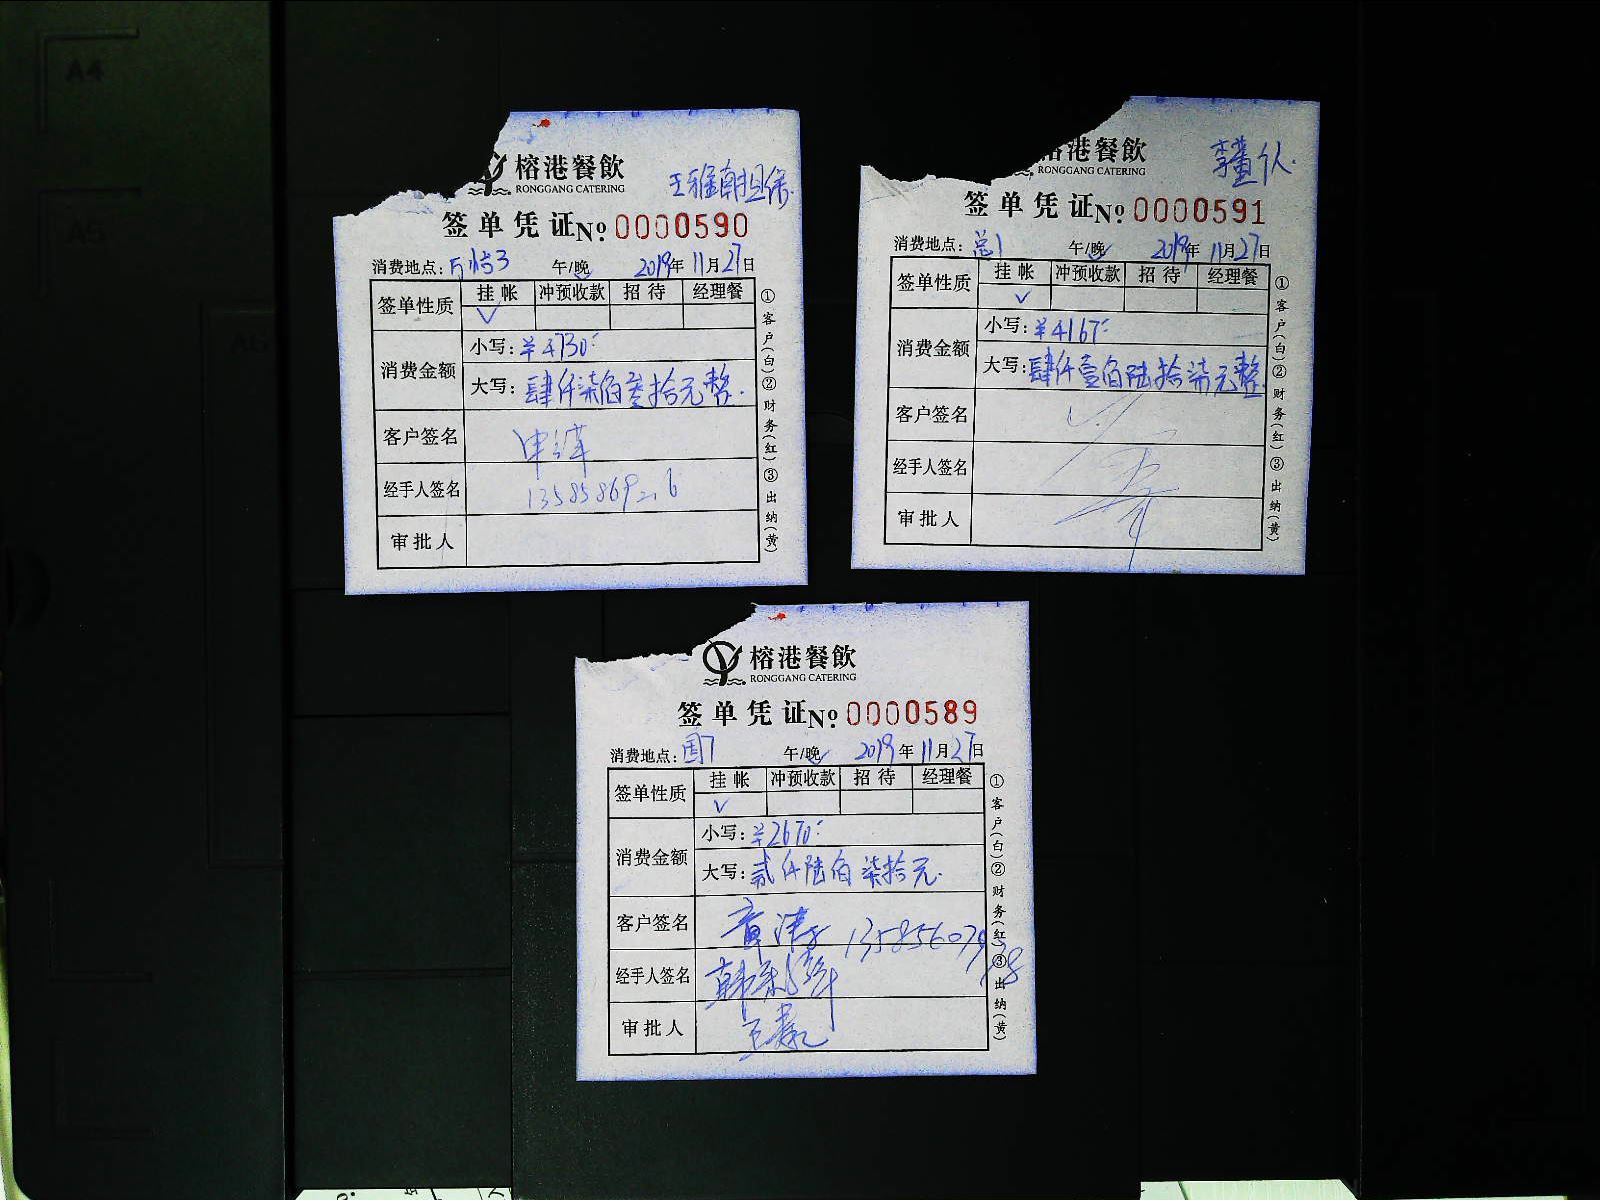 A4
A5
榕港餐飲
RONGGANG CATERING
签单凭证 No. 0000590
消费地点: 午/晚 2019年11月27日
签单性质 挂帐 冲预收款 招待 经理餐
消费金额 小写: ¥4730
大写: 肆仟柒佰叁拾元整
客户签名
经手人签名 13585869
审批人
①客户(白)②财务(红)③出纳(黄)
港餐飲
RONGGANG CATERING
签单凭证 No. 0000591
消费地点: 总1 午/晚 2019年11月27日
签单性质 挂帐 冲预收款 招待 经理餐
消费金额 小写: ¥4167
大写: 肆仟壹佰陆拾柒元整
客户签名
经手人签名
审批人
①客户(白)②财务(红)③出纳(黄)
榕港餐飲
RONGGANG CATERING
签单凭证 No. 0000589
消费地点: 午/晚 2019年11月27日
签单性质 挂帐 冲预收款 招待 经理餐
消费金额 小写: ¥2670
大写: 贰仟陆佰柒拾元
客户签名
经手人签名
审批人
①客户(白)②财务(红)③出纳(黄)